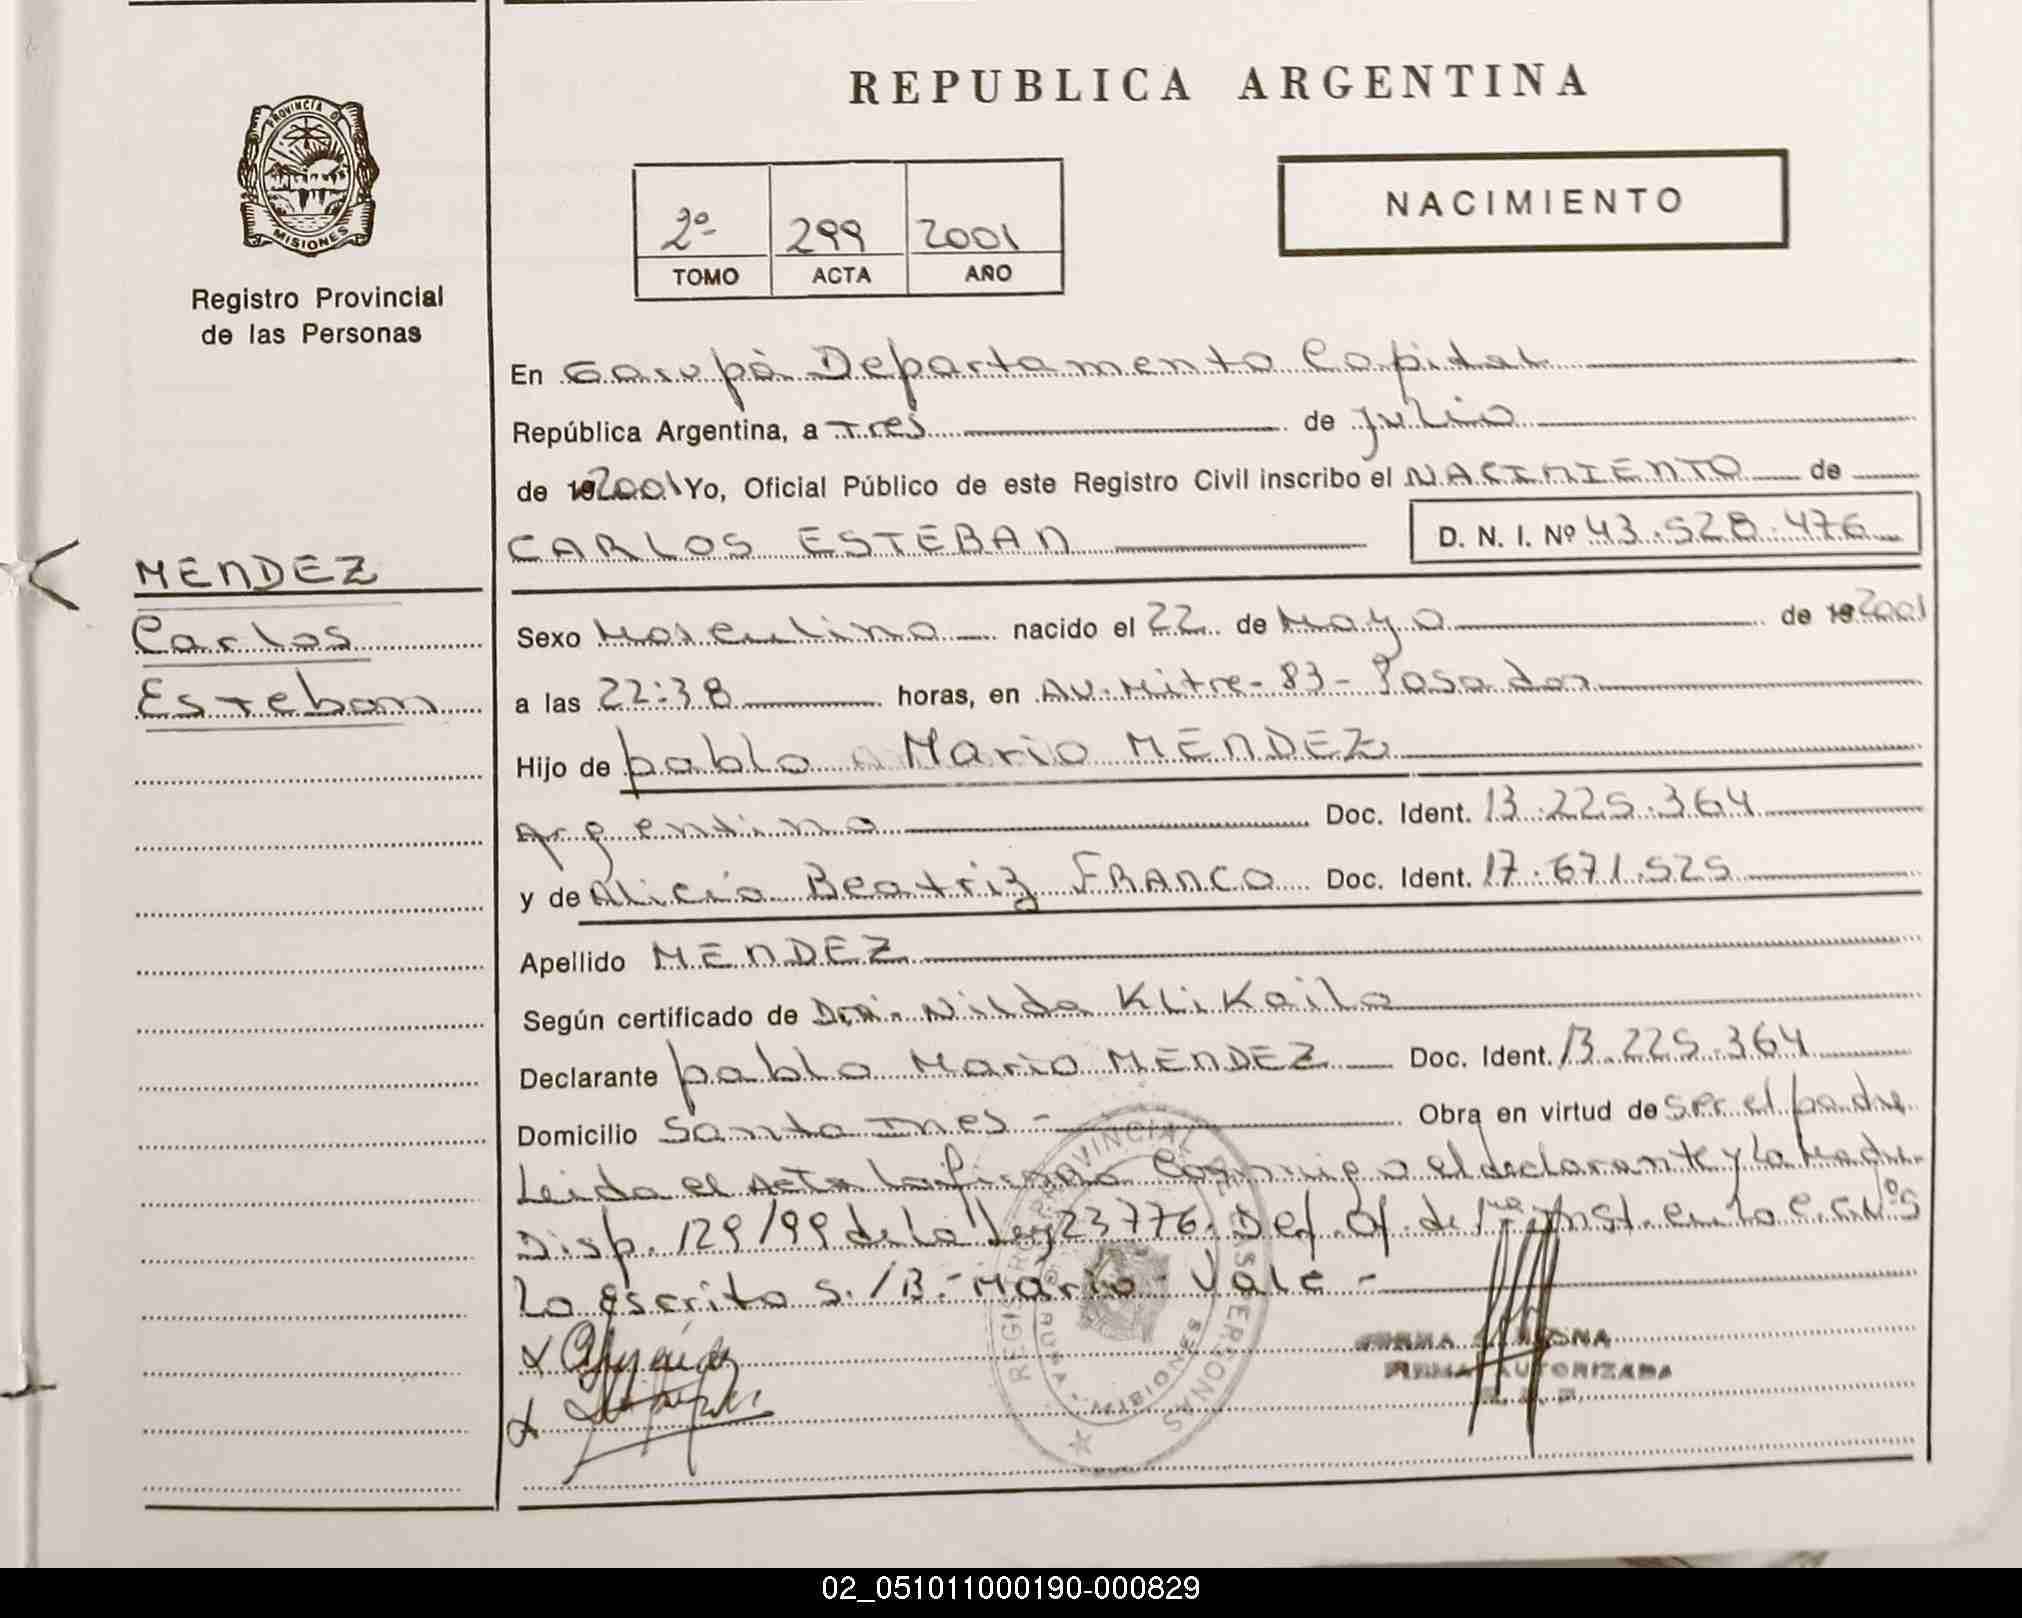 REPUBLICA ARGENTINA
PROVINCIA DE
MISIONES
Registro Provincial
de las Personas
2º 299 2001
TOMO ACTA AÑO
NACIMIENTO
En Garupá Departamento Capital
República Argentina, a Tres de Julio
de 192001 Yo, Oficial Público de este Registro Civil inscribo el NACIMIENTO de
CARLOS ESTEBAN D. N. I. Nº 43.528.476
MENDEZ
Carlos
Esteban
Sexo Masculino nacido el 22 de Mayo de 192001
a las 22:38 horas, en Av. Mitre - 83 - Posadas
Hijo de pablo Mario MENDEZ
Argentino Doc. Ident. 13.225.364
y de Alicia Beatriz FRANCO Doc. Ident. 17.671.525
Apellido MENDEZ
Según certificado de Dra. Nilda Klikailo
Declarante pablo Mario MENDEZ Doc. Ident. 13.225.364
Domicilio Santa Ines - Obra en virtud de ser el padre
Leida el Acta la firma Conmigo el declarante y la Madre
Disp. 129/99 de la Ley 23776. Def. Of. de 1ra Inst. en lo C. Nº 5
Lo Escrito s./B. - Mario - Vale -
REGISTRO PROVINCIAL DE LAS PERSONAS
MISIONES
FIRMA AUTORIZADA
02_051011000190-000829